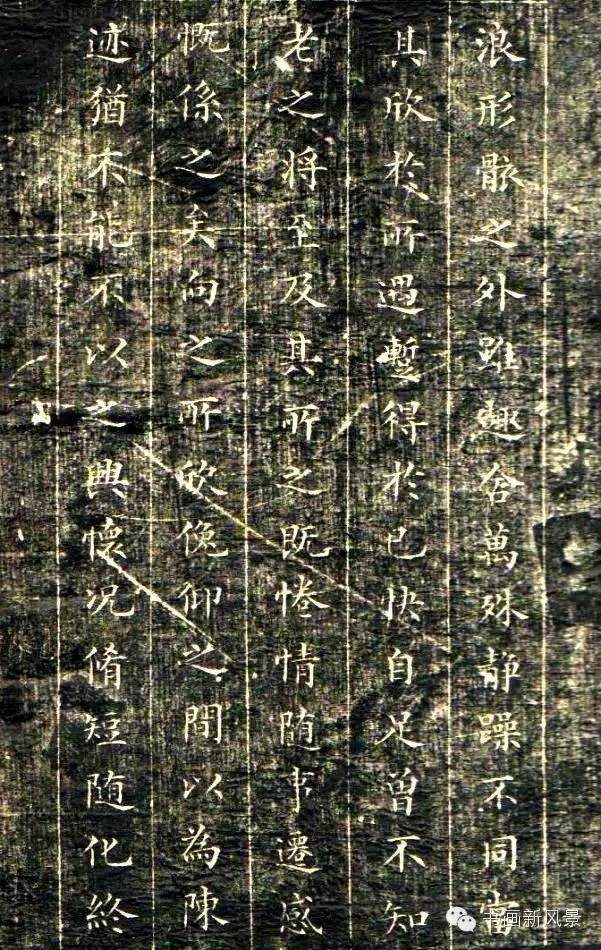 浪形骸之外雖趣舍萬殊静躁不同當
其欣於所遇蹔得於己快自足曾不知
老之将至及其所之既惓情随事遷感
慨係之矣向之所欣俛仰之間以為陳
迹猶不能不以之興懷况脩短随化終
书画新风景